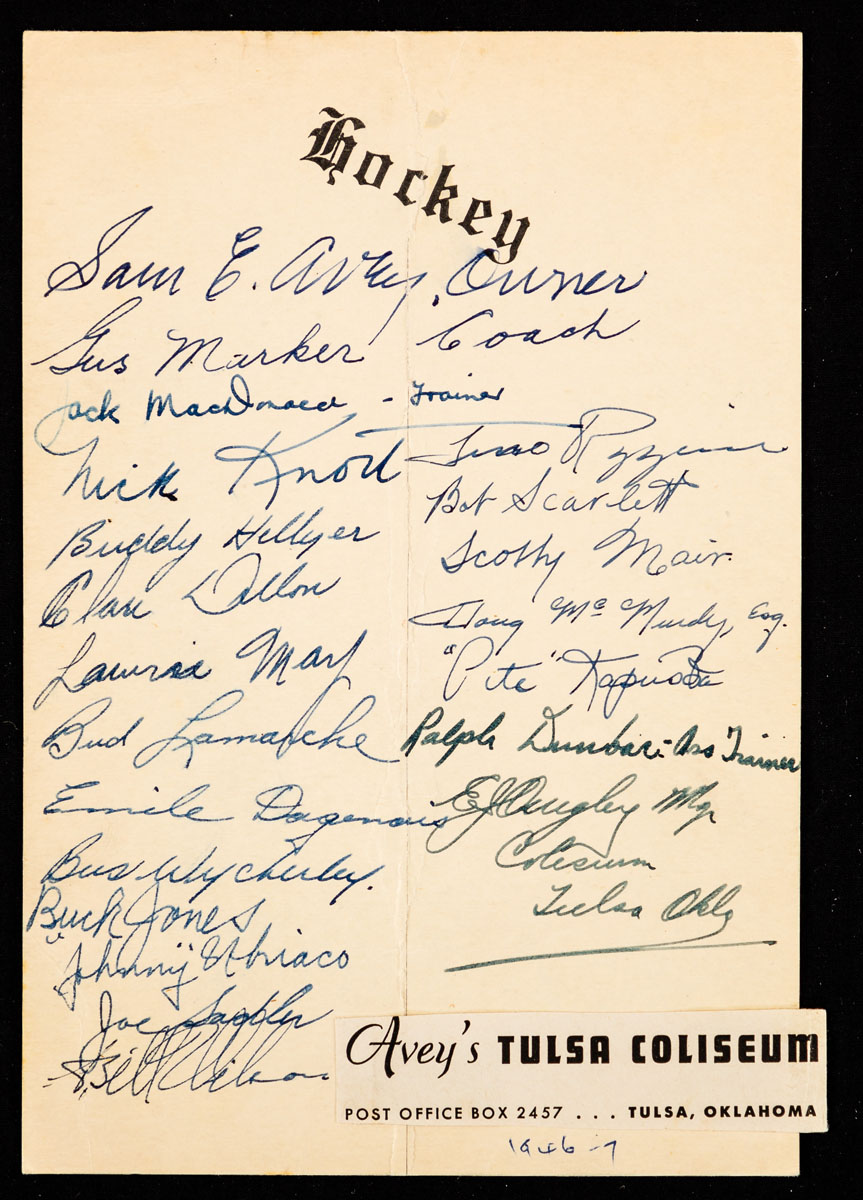 Hockey
Sam E. Avey, Owner
Gus Marker Coach
Jack MacDonald - Trainer
Nick Knott
Buddy Hellyer
Clare Dillon
Lawrie May
Bud Lamarche
Emile Dagenais
Bus Wycherley.
"Buck" Jones
Johnny Ubriaco
Joe
Bill Wilson
Bob Scarlett
Scotty Mair.
Doug Mc Murdy, Esq.
"Pete" Kapusta
Ralph Dunbar - Ass Trainer
Mgr
Coliseum
Tulsa Okla
Avey's TULSA COLISEUM
POST OFFICE BOX 2457 . . . TULSA, OKLAHOMA
1946-7